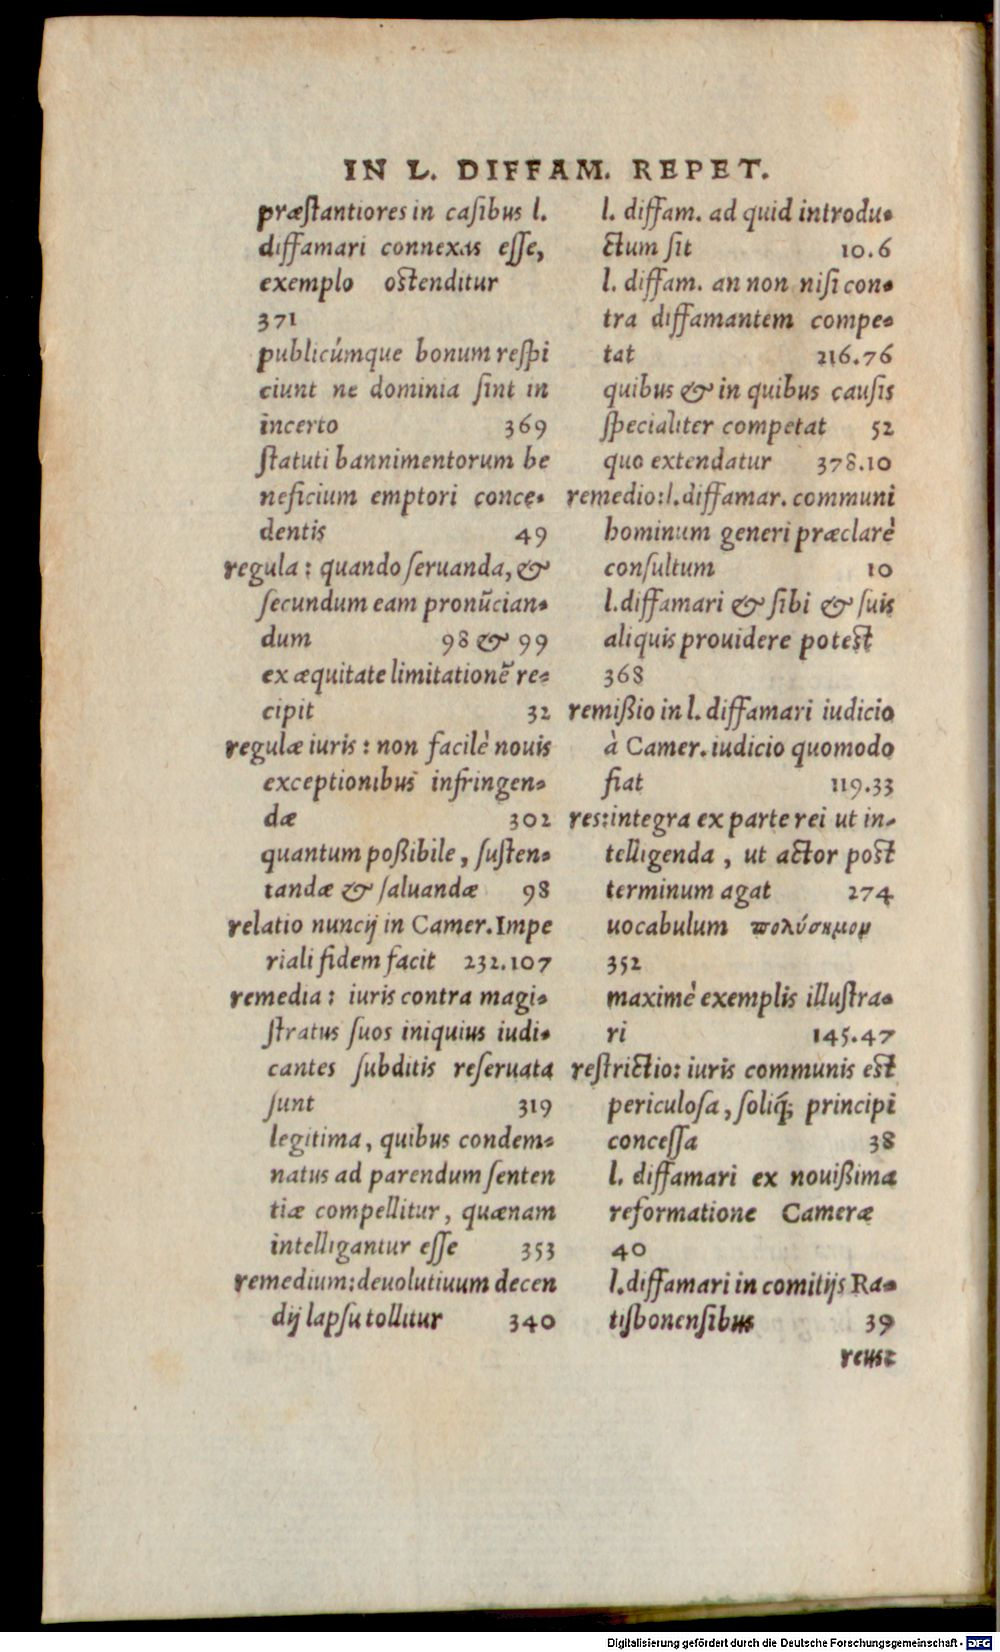 IN L. DIFFAM. REPET.
præstantiores in casibus l.
diffamari connexas esse,
exemplo ostenditur
371
publicúmque bonum respi
ciunt ne dominia sint in
incerto 369
statuti bannimentorum be
neficium emptori conce-
dentis 49
regula: quando seruanda, &
secundum eam pronūcian-
dum 98 & 99
ex æquitate limitationē re-
cipit 32
regulæ iuris: non facilè nouis
exceptionibus infringen-
dæ 302
quantum poßibile, susten-
tandæ & saluandæ 98
relatio nuncij in Camer. Impe
riali fidem facit 232.107
remedia: iuris contra magi-
stratus suos iniquius iudi-
cantes subditis reseruata
sunt 319
legitima, quibus condem-
natus ad parendum senten
tiæ compellitur, quænam
intelligantur esse 353
remedium: deuolutiuum decen
dij lapsu tollitur 340
l. diffam. ad quid introdu-
ctum sit 10.6
l. diffam. an non nisi con-
tra diffamantem compe-
tat 216.76
quibus & in quibus causis
specialiter competat 52
quo extendatur 378.10
remedio: l. diffamar. communi
hominum generi præclarè
consultum 10
l. diffamari & sibi & suis
aliquis prouidere potest
368
remißio in l. diffamari iudicio
à Camer. iudicio quomodo
fiat 119.33
res: integra ex parte rei ut in-
telligenda, ut actor post
terminum agat 274
uocabulum πολύσημομ
352
maximè exemplis illustra-
ri 145.47
restrictio: iuris communis est
periculosa, soliq́; principi
concessa 38
l. diffamari ex nouißima
reformatione Cameræ
40
l. diffamari in comitijs Ra-
tisbonensibus 39
reuse
Digitalisierung gefördert durch die Deutsche Forschungsgemeinschaft - DFG